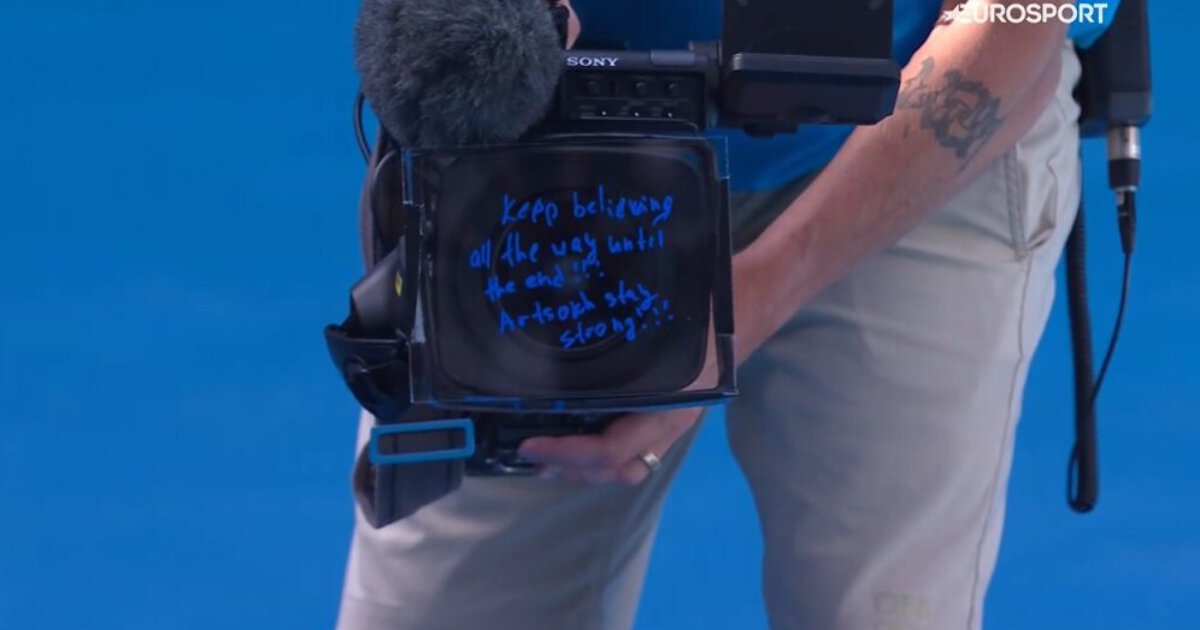 EUROSPORT
SONY
Kepp believing
all the way until
the end!!!
Artsakh stay
strong!!!